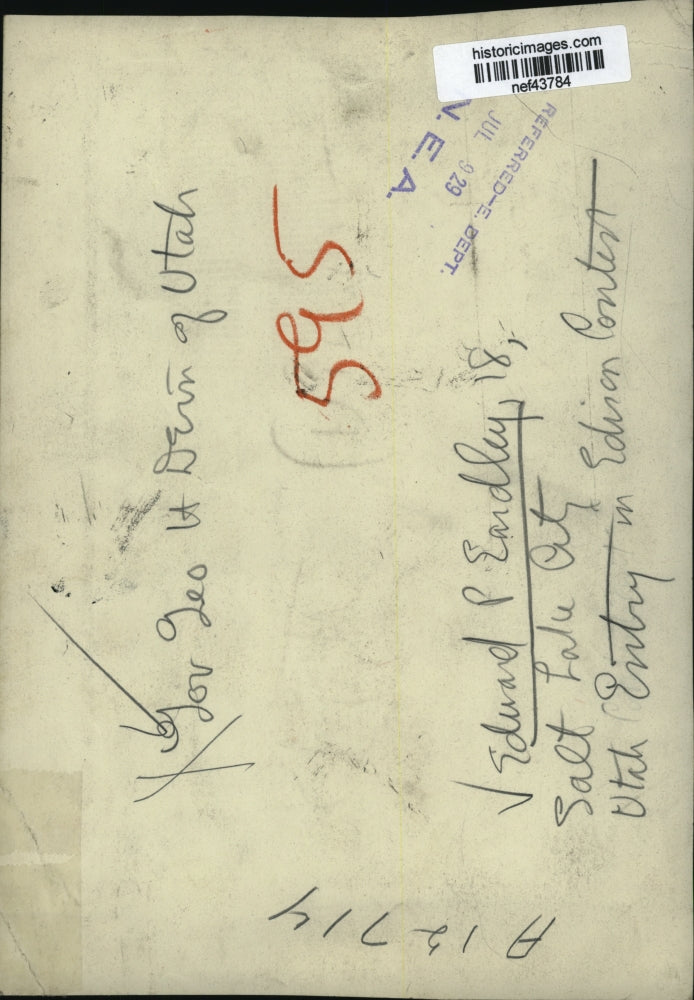 historicimages.com
nef43784
REFERRED-E. DEPT.
JUL 9 29
N. E. A.
595
Gov Geo H Dern of Utah
Edward P Eardley, 18,
Salt Lake City
Utah Entry in Edison Contest
A 12714